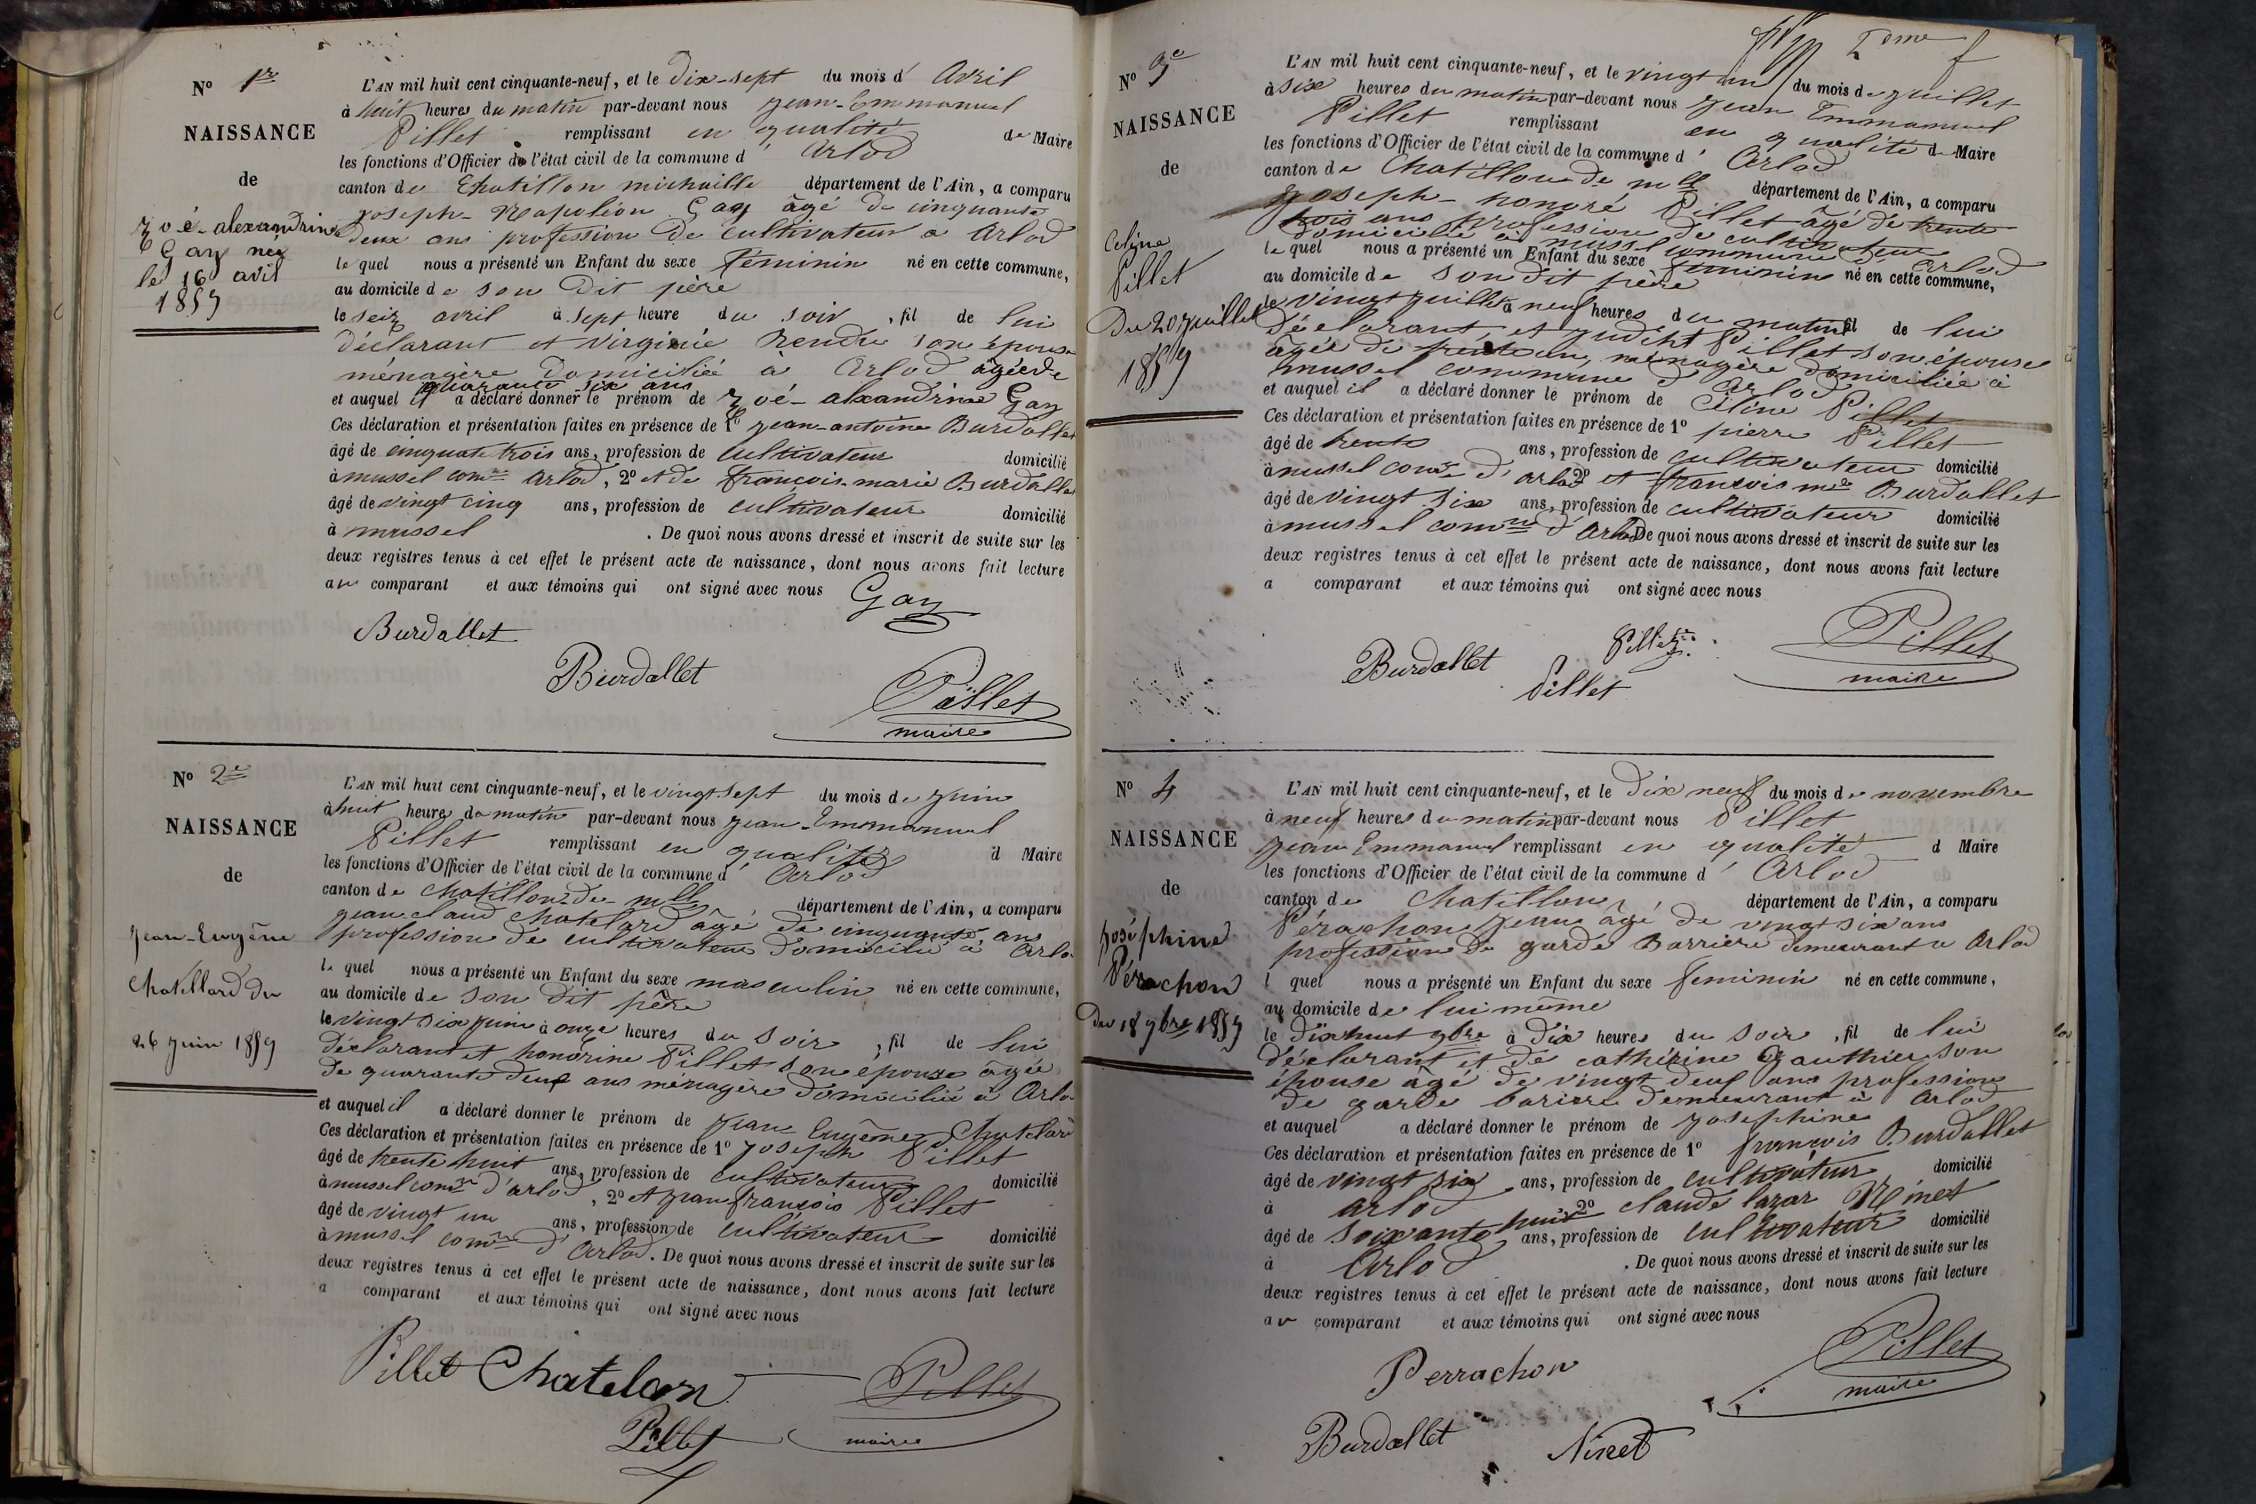 No 1er
NAISSANCE
de
zoé-alexandrine
Gay née
le 16 avil
1859
L'AN mil huit cent cinquante-neuf, et le dix-sept du mois d' Avril
à huit heures du matin par-devant nous jean-Emmanuel
Pillet remplissant en qualité de Maire
les fonctions d'Officier de l'état civil de la commune d' Arlod
canton de Chatillon michaille département de l'Ain, a comparu
joseph-Napoléon Gay âgé de cinquante
deux ans profession de cultivateur a Arlod
le quel nous a présenté un Enfant du sexe feminin né en cette commune,
au domicile de son dit père
le seiz avril à sept heure du soir, fil de lui
déclarant et virginie Rendu son épouse
ménagère domiciliée à Arlod âgée de
quarante six ans
et auquel il a déclaré donner le prénom de zoé-alexandrine Gay
Ces déclaration et présentation faites en présence de 1o jean-antoine Burdallet
âgé de cinquate trois ans, profession de cultivateur domicilié
à mussel comne Arlod, 2o et de françois-marie Burdallet
âgé de vingt cinq ans, profession de cultivateur domicilié
à mussel . De quoi nous avons dressé et inscrit de suite sur les
deux registres tenus à cet effet le présent acte de naissance, dont nous avons fait lecture
au comparant et aux témoins qui ont signé avec nous
Gay
Burdallet
Burdallet
Pillet
maire
No 2e
NAISSANCE
de
jean-Eugène
Chatellard du
26 juin 1859
L'AN mil huit cent cinquante-neuf, et le vingt sept du mois de juin
à huit heures du matin par-devant nous jean-Emmanuel
Pillet remplissant en qualité d Maire
les fonctions d'Officier de l'état civil de la commune d' Arlod
canton de Chatillon de mlle département de l'Ain, a comparu
jean claud Chatelard âgé de cinquante ans
profession de cultivateur domicilié à Arlod
le quel nous a présenté un Enfant du sexe masculin né en cette commune,
au domicile de son dit père
le vingt six juin à onze heures du soir, fil de lui
déclarant et honorine Pillet son épouse âgée
de quarante deux ans ménagère domiciliée à Arlod
et auquel il a déclaré donner le prénom de jean Eugène Chatelard
Ces déclaration et présentation faites en présence de 1o joseph Pillet
âgé de trente huit ans, profession de cultivateur domicilié
à mussel comne d'arlod, 2o et jean françois Pillet
âgé de vingt un ans, profession de cultivateur domicilié
à mussel comne d' Arlod. De quoi nous avons dressé et inscrit de suite sur les
deux registres tenus à cet effet le présent acte de naissance, dont nous avons fait lecture
a comparant et aux témoins qui ont signé avec nous
Pillet Chatelarn
Pillet
maire
Pillet
2eme f
No 3e
NAISSANCE
de
Celine
Pillet
Du 20 juillet
1859
L'AN mil huit cent cinquante-neuf, et le vingt un du mois de juillet
à six heures du matin par-devant nous jean Emmanuel
Pillet remplissant en qualité de Maire
les fonctions d'Officier de l'état civil de la commune d' Arlod
canton de Chatillon de mlle département de l'Ain, a comparu
joseph-honoré Pillet âgé de trente
trois ans profession de cultivateur
domicilié à mussel commune d' Arlod
le quel nous a présenté un Enfant du sexe feminin né en cette commune,
au domicile de son dit père
le vingt juillet à neuf heures du matin fil de lui
déclarant, et judiht Pillet son épouse
âgée de trente un, ménagère domiciliée à
mussel commune d' Arlod
et auquel il a déclaré donner le prénom de Céline Pillet
Ces déclaration et présentation faites en présence de 1o pierre Pillet
âgé de trente ans, profession de cultivateur domicilié
à mussel comne d'arlod 2o et françois mie Burdallet
âgé de vingt six ans, profession de cultivateur domicilié
à mussel comne d' Arlod De quoi nous avons dressé et inscrit de suite sur les
deux registres tenus à cet effet le présent acte de naissance, dont nous avons fait lecture
a comparant et aux témoins qui ont signé avec nous
Burdallet
Pillet
Pillet
Pillet
maire
No 4
NAISSANCE
de
joséphine
Pérachon
du 18 9bre 1859
L'AN mil huit cent cinquante-neuf, et le dix neuf du mois de novembre
à neuf heures du matin par-devant nous Pillet
jean Emmanuel remplissant en qualité d Maire
les fonctions d'Officier de l'état civil de la commune d' Arlod
canton de Chatillon département de l'Ain, a comparu
Pérachon âgé de vingt six ans
profession de garde Barriere demeurant a Arlod
l quel nous a présenté un Enfant du sexe feminin né en cette commune,
au domicile de lui même
le dixhuit 9bre à dix heures du soir, fil de lui
déclarant et de cathérine Gauthier son
épouse âgé de vingt deux ans profession
de garde bariere demeurant à Arlod
et auquel a déclaré donner le prénom de josephine
Ces déclaration et présentation faites en présence de 1o françois Burdallet
âgé de vingt six ans, profession de cultivateur domicilié
à arlod 2o claude lazar Ninet
âgé de soixante huit ans, profession de cultivateur domicilié
à Arlod . De quoi nous avons dressé et inscrit de suite sur les
deux registres tenus à cet effet le présent acte de naissance, dont nous avons fait lecture
au comparant et aux témoins qui ont signé avec nous
Perrachon
Pillet
maire
Burdallet
Ninet